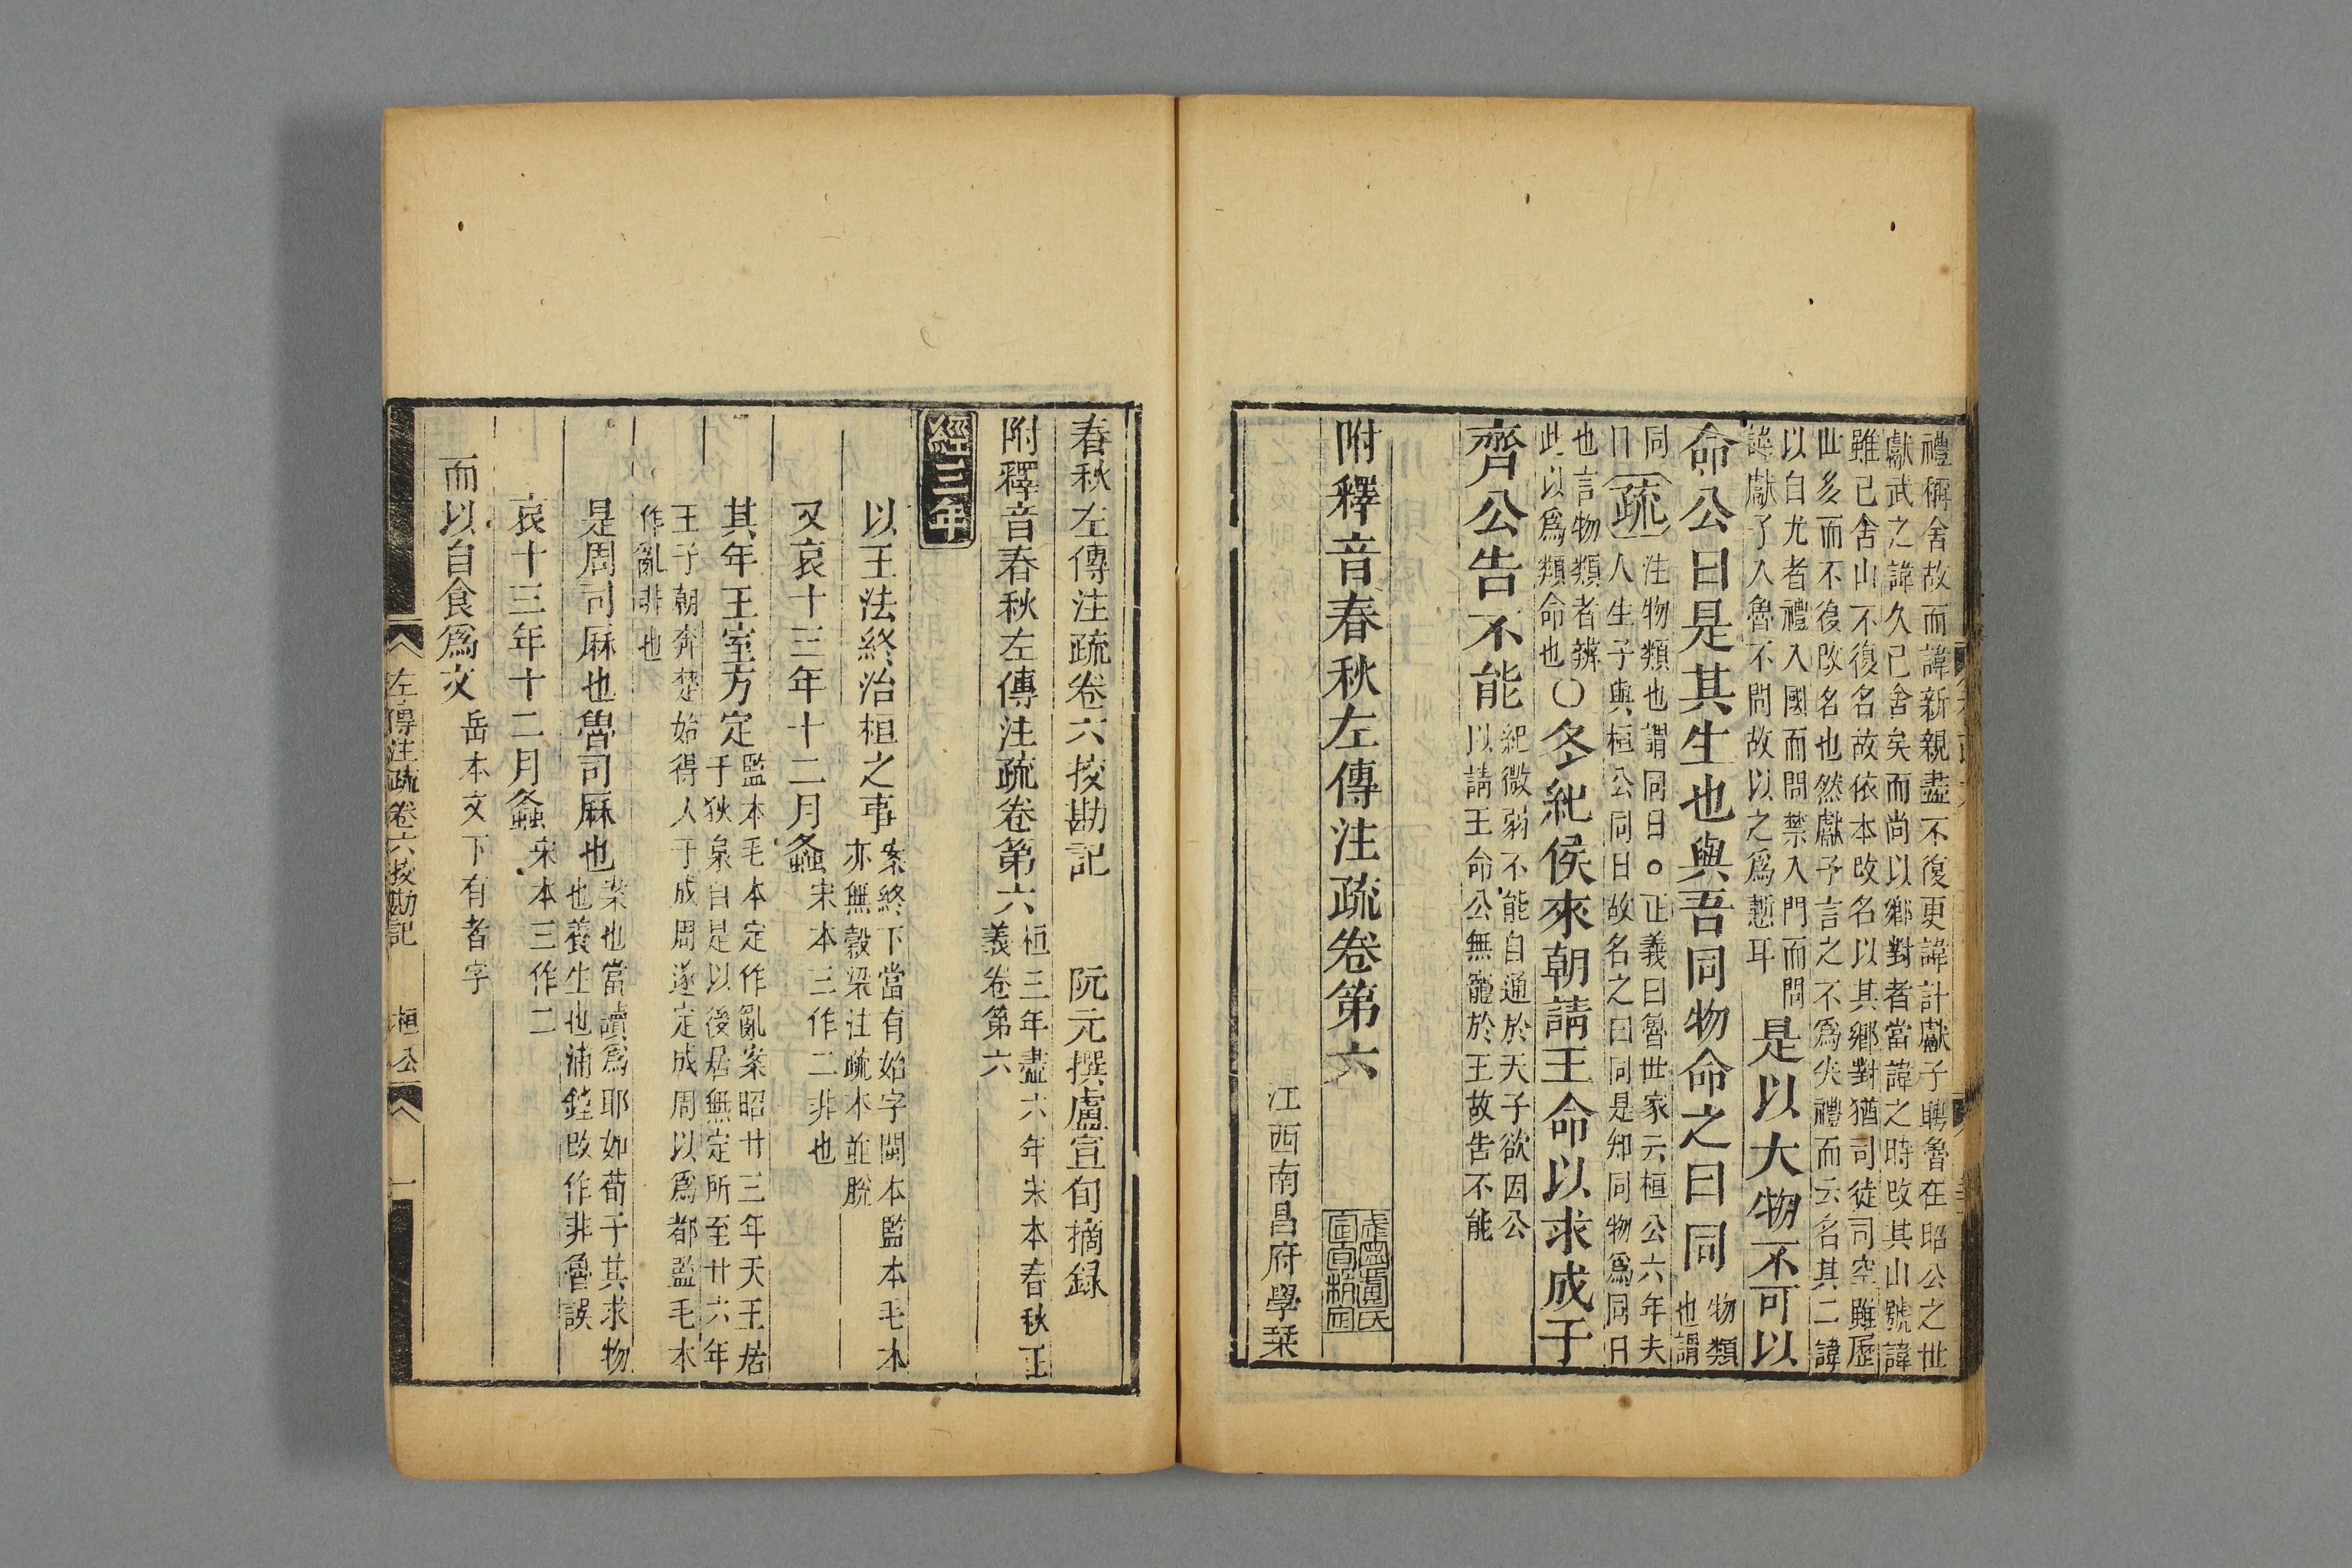 禮稱舍故而諱新親盡不復更諱計獻子聘魯在昭公之世
獻武之諱久已舍矣而尚以鄉對者當諱之時改其山號諱
雖已舍山不復名故依本改名以其鄉對猶司徒司空雖歷
世多而不復改名也然獻子言之不爲失禮而云名其二諱
以自尤者禮入國而問禁入門而問
諱獻子入魯不問故以之爲慙耳
是以大物不可以
命公曰是其生也與吾同物命之曰同
物類
也謂
同
日
疏
注物類也謂同日○正義曰魯世家云桓公六年夫
人生子與桓公同日故名之曰同是知同物爲同日
也言物類者辨
此以爲類命也
○冬紀侯來朝請王命以求成于
齊公告不能
紀微弱不能自通於天子欲因公
以請王命公無寵於王故告不能
附釋音春秋左傳注疏卷第六
江西南昌府學栞
春秋左傳注疏卷六挍勘記 阮元撰盧宣旬摘録
附釋音春秋左傳注疏卷第六
桓三年盡六年宋本春秋正
義卷第六
經三年
以王法終治桓之事
案終下當有始字閩本監本毛本
亦無穀梁注疏本並脫
又哀十三年十二月螽
宋本三作二非也
其年王室方定
監本毛本定作亂案昭廿三年天王居
于狄泉自是以後居無定所至廿六年
王子朝奔楚始得入于成周遂定成周以爲都監毛本
作亂非也
是周司厤也魯司厤也
案也當讀爲耶如荀子其求物
也養生也浦鏜改作非魯誤
哀十三年十二月螽
宋本三作二
而以自食爲文
岳本文下有者字
左傳注疏卷六挍勘記 桓公 一